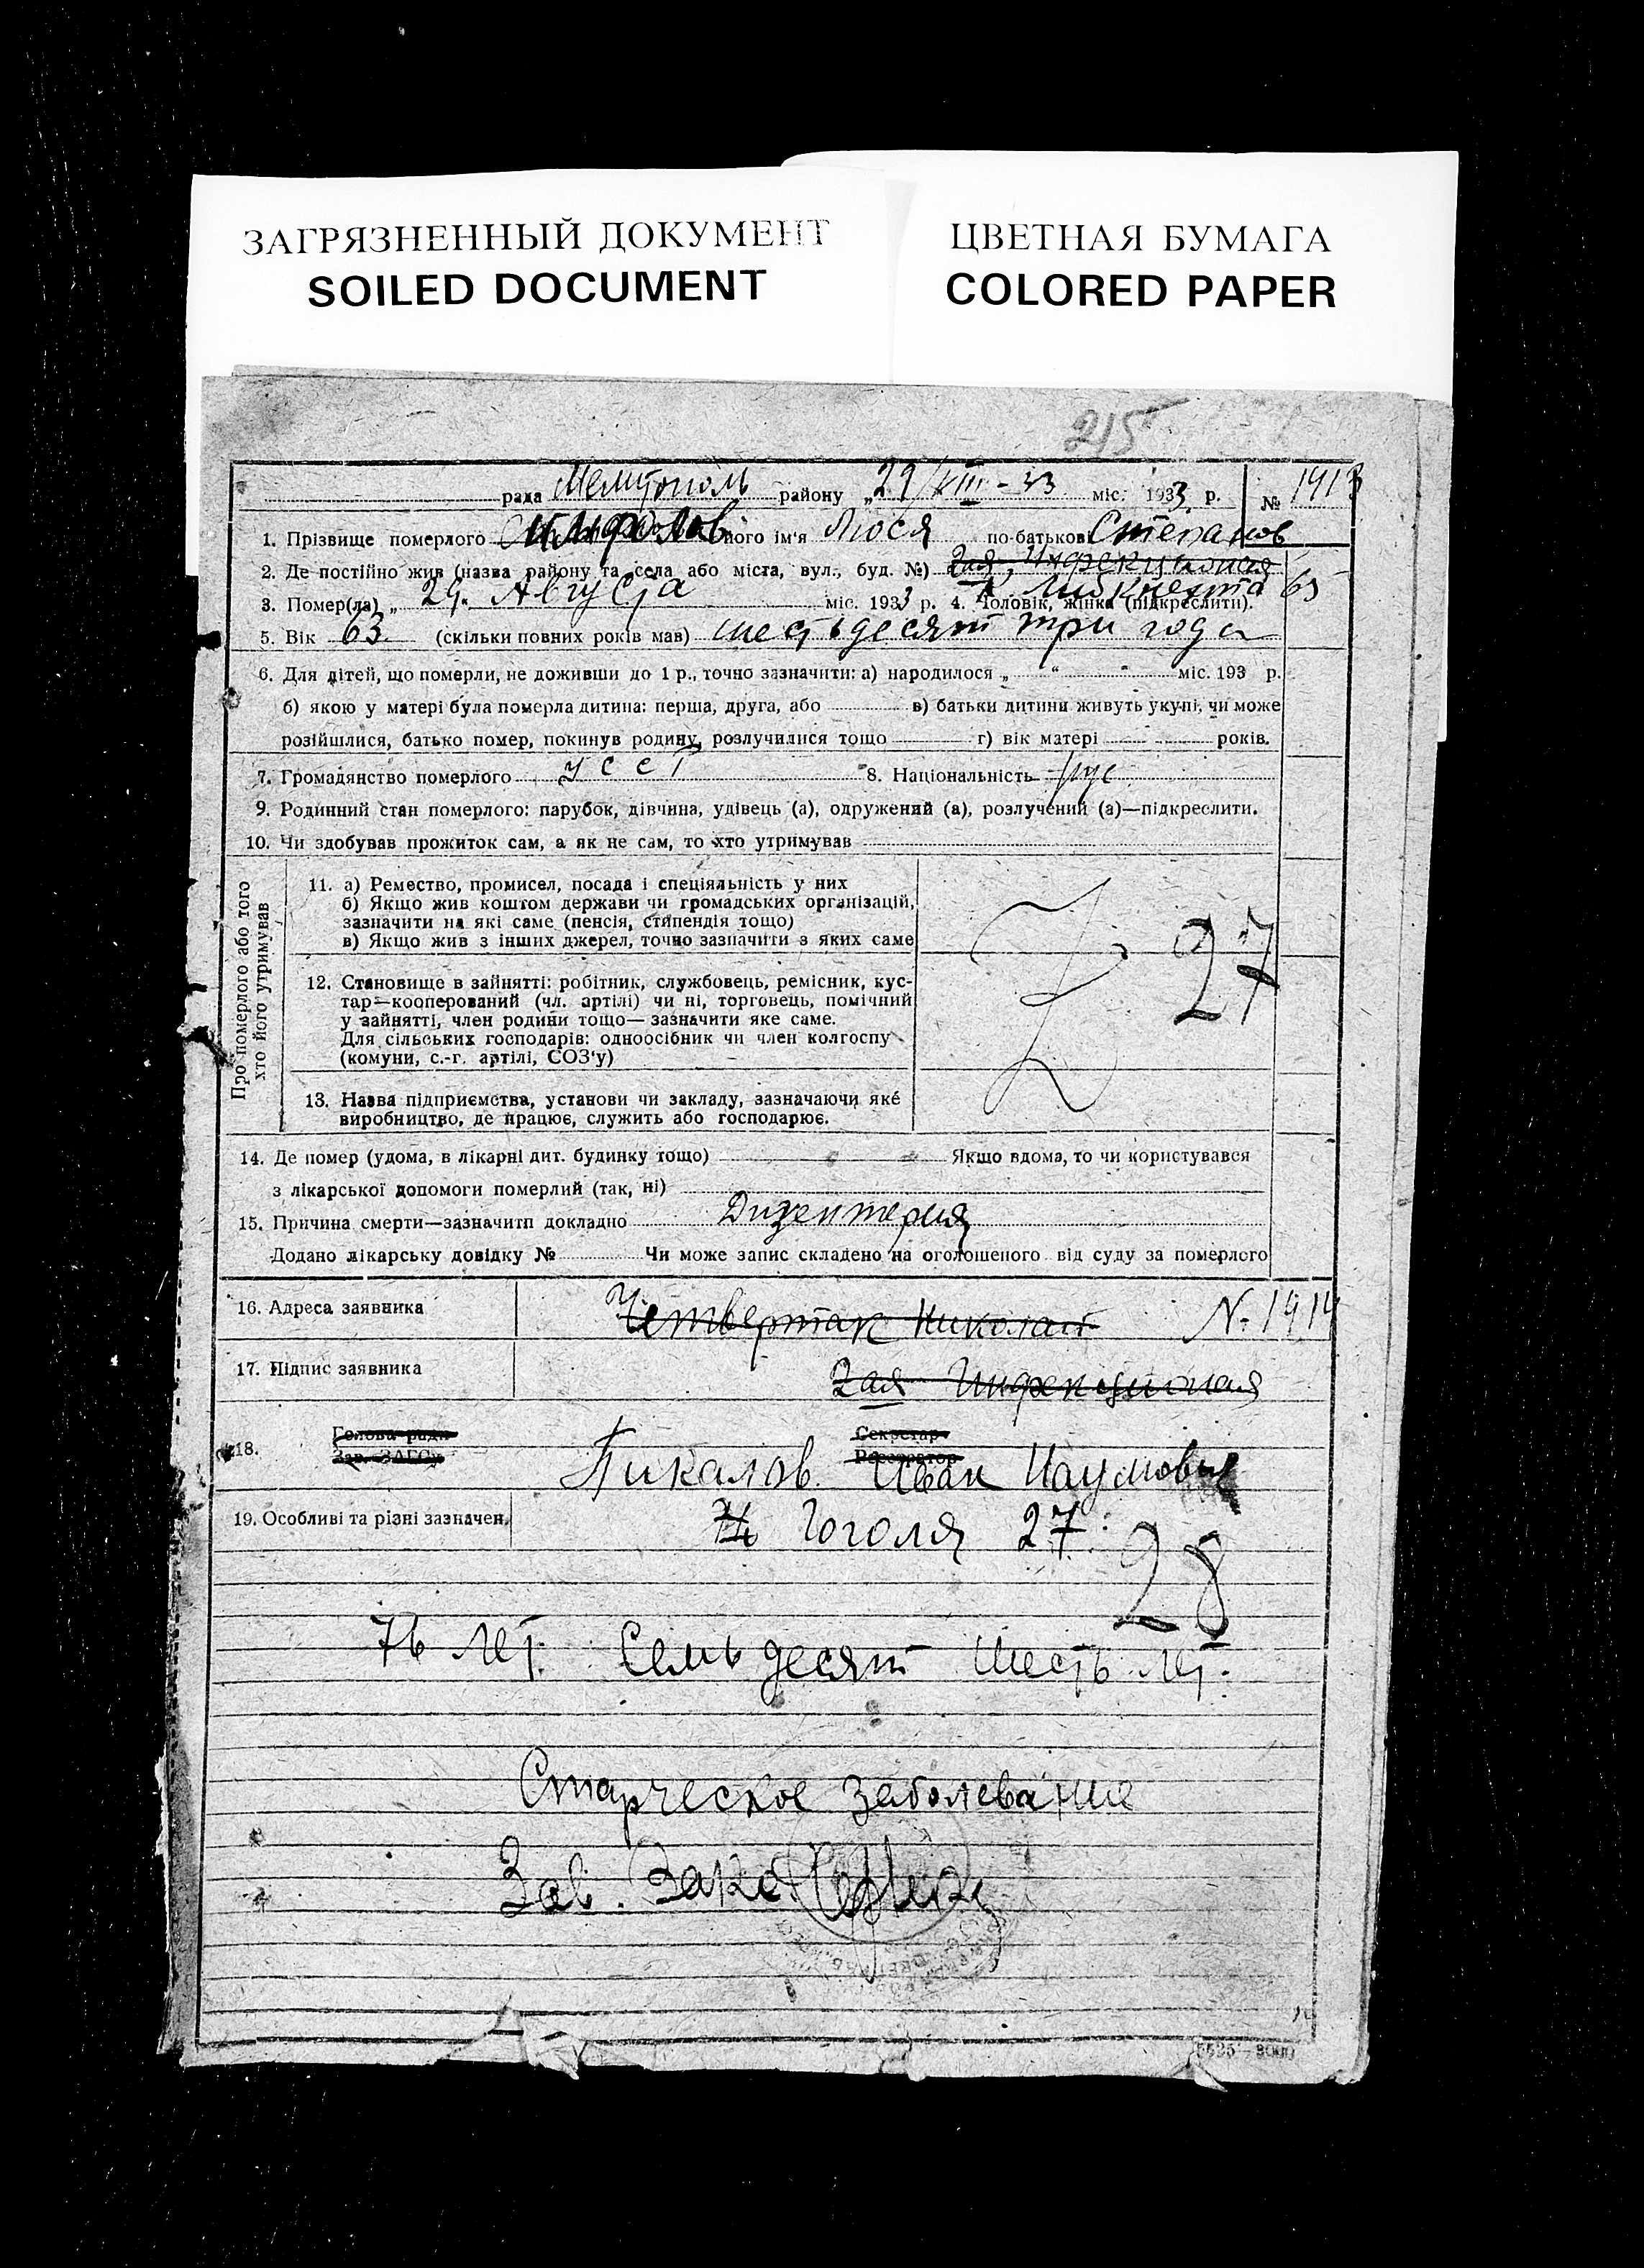 ЗАГРЯЗНЕННЫЙ ДОКУМЕНТ
SOILED DOCUMENT
ЦВЕТНАЯ БУМАГА
COLORED PAPER
215
рада Мелитополь району „29/VIII-33 міс. 1933 р. № 1913
1. Прізвище померлого його ім'я Люся по-батькові Степанов
2. Де постійно жив (назва району та села або міста, вул., буд. №) Зая, Инфекционая
Либкнехта 65
3. Помер(ла) „ 29. Августа міс. 1933 р. 4. Чоловік, жінка (підкреслити).
5. Вік 63 (скільки повних років мав) шестьдесят три года
6. Для дітей, що померли, не доживши до 1 р., точно зазначити: а) народилося „ “ міс. 193 р.
б) якою у матері була померла дитина: перша, друга, або в) батьки дитини живуть укупі, чи може
розійшлися, батько помер, покинув родину, розлучилися тощо г) вік матері років.
7. Громадянство померлого УССР 8. Національність рус
9. Родинний стан померлого: парубок, дівчина, удівець (а), одружений (а), розлучений (а)—підкреслити.
10. Чи здобував прожиток сам, а як не сам, то хто утримував
Про померлого або того
хто його утримував
11. а) Ремество, промисел, посада і спеціяльність у них
б) Якщо жив коштом держави чи громадських організацій,
зазначити на які саме (пенсія, стипендія тощо)
в) Якщо жив з інших джерел, точно зазначити з яких саме
27
12. Становище в зайнятті: робітник, службовець, ремісник, кус-
тар—кооперований (чл. артілі) чи ні, торговець, помічний
у зайнятті, член родини тощо— зазначити яке саме.
Для сільських господарів: одноосібник чи член колгоспу
(комуни, с.-г. артілі, СОЗ'у)
13. Назва підприємства, установи чи закладу, зазначаючи яке
виробництво, де працює, служить або господарює.
14. Де помер (удома, в лікарні дит. будинку тощо) Якщо вдома, то чи користувався
з лікарської допомоги померлий (так, ні)
15. Причина смерти—зазначити докладно Дизентерия
Додано лікарську довідку № Чи може запис складено на оголошеного від суду за померлого
16. Адреса заявника Четвертак Николай № 1914
17. Підпис заявника Зая Инфекционая
18. Голова ради Секретар
Зав. ЗАГСу Реєстратор
Пикалов Иван Наумович
19. Особливі та різні зазначен. Гоголя 27
28
76 лет. Семьдесят шесть лет.
Старческое заболевание
Зав. Загс
5525—8000